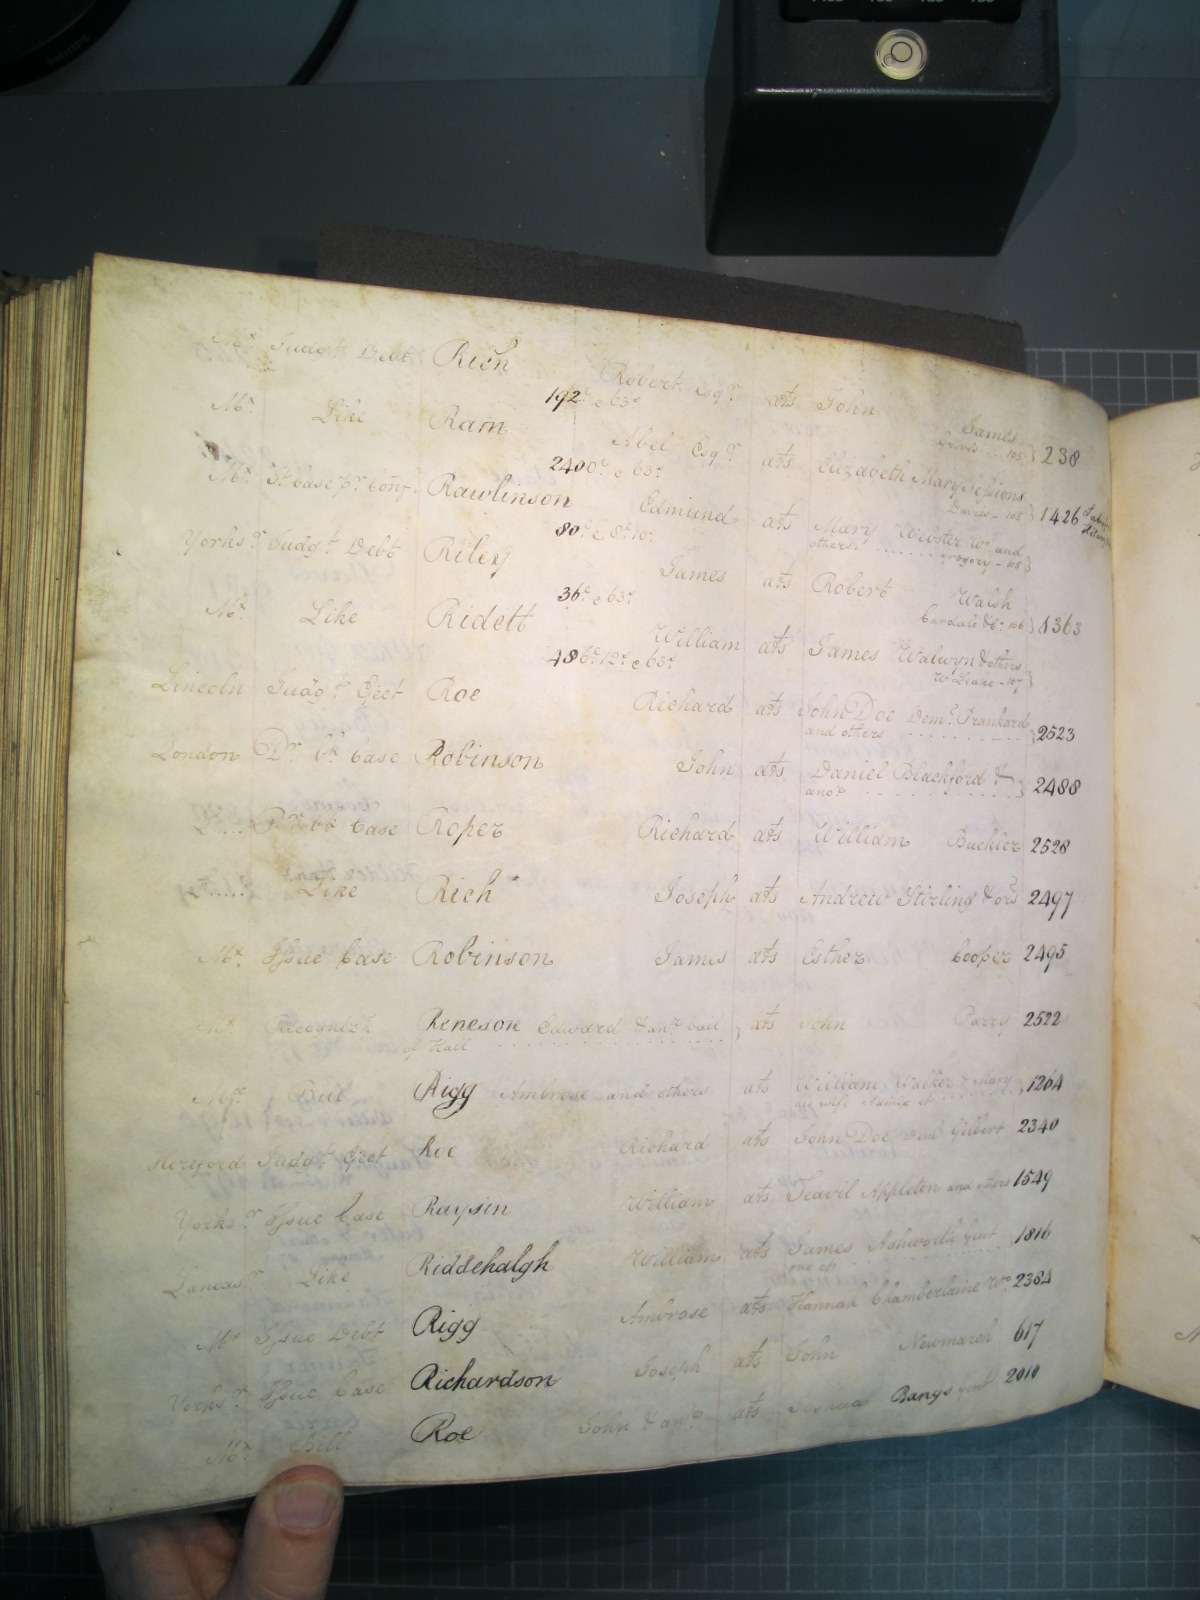 Mx. Judgt. Debt Rich Robert Esqr. ats John James
192£ & 63s Jervis - 105 } 238
Mx. Like Ram Abel Esqr. ats Elizabeth Mary Sessions
2400£ & 63s Davis - 105 } 1426
Mx. Rawlinson Edmund ats Mary Webster Wo. and
80£ & 8£ 10s others Gregory - 105 }
Yorksr. Judgt. Debt Riley James ats Robert Walsh
36£ & 63s Cardale & Co. 106 } 1363
Mx. Like Ridett William ats James Walwyn & others
486£ 12s & 63s Wm. Leake - 107 }
Lincoln Judgt. Eject Roe Richard ats John Doe Demo. Frankard
and others } 2523
London Case Robinson John ats Daniel Blackford &
anor. } 2488
L..... Case Roper Richard ats William Buckler 2528
L..... Like Rich Joseph ats Andrew Stirling & ors 2497
Mx. Issue Case Robinson James ats Esther Cooper 2495
Mx. Recogniz. Reneson Edward & anr. bail } ats John Parry 2522
of Hall
Mx. Rigg Ambrose and others ats William Walker & Mary } 1264
his wife
Hereford Judgt. Eject Roe Richard ats John Doe Demo. Gilbert 2340
Yorksr. Issue Case Raysin William ats Teavil Appleton and others 1549
Lancasr. Like Riddehalgh William ats James Ashworth gent } 1816
one of
Mx. Issue Debt Rigg Ambrose ats Hannah Chamberlaine Wo. 2384
Yorksr. Issue Case Richardson Joseph ats John Newmarch 617
Mx. Bill Roe John & anor. ats Joshua Bangs gent 2010